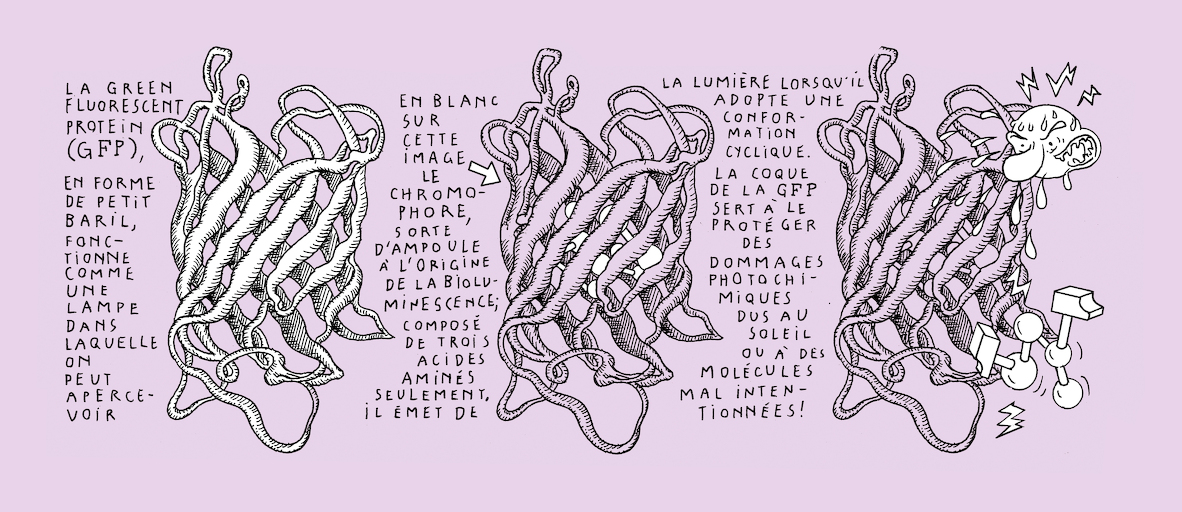 LA GREEN
FLUORESCENT
PROTEIN
(GFP),
EN FORME
DE PETIT
BARIL,
FONC-
TIONNE
COMME
UNE
LAMPE
DANS
LAQUELLE
ON
PEUT
APERCE-
VOIR
EN BLANC
SUR
CETTE
IMAGE
LE
CHROMO-
PHORE,
SORTE
D'AMPOULE
À L'ORIGINE
DE LA BIOLU-
MINESCENCE;
COMPOSÉ
DE TROIS
ACIDES
AMINÉS
SEULEMENT,
IL ÉMET DE
LA LUMIÈRE LORSQU'IL
ADOPTE UNE
CONFOR-
MATION
CYCLIQUE.
LA COQUE
DE LA GFP
SERT À LE
PROTÉGER
DES
DOMMAGES
PHOTOCHI-
MIQUES
DUS AU
SOLEIL
OU À DES
MOLÉCULES
MAL INTEN-
TIONNÉES!